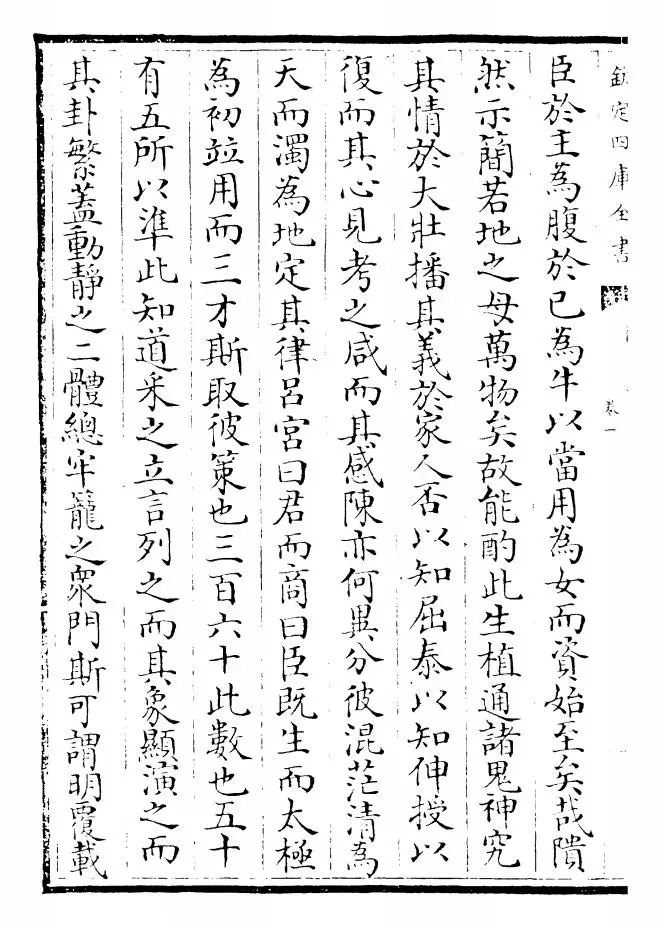 欽定四庫全書
卷一
臣於主為腹於已為牛以當用為女而資始至矣哉隤
然示簡若地之母萬物矣故能酌此生植通諸鬼神究
其情於大壯播其義於家人否以知屈泰以知伸授以
復而其心見考之咸而其感陳亦何異分彼混茫清為
天而濁為地定其律呂宮曰君而商曰臣既生而太極
為初竝用而三才斯取彼策也三百六十此數也五十
有五所以準此知道釆之立言列之而其象顯演之而
其卦繁蓋動靜之二體總牢籠之衆門斯可謂明覆載